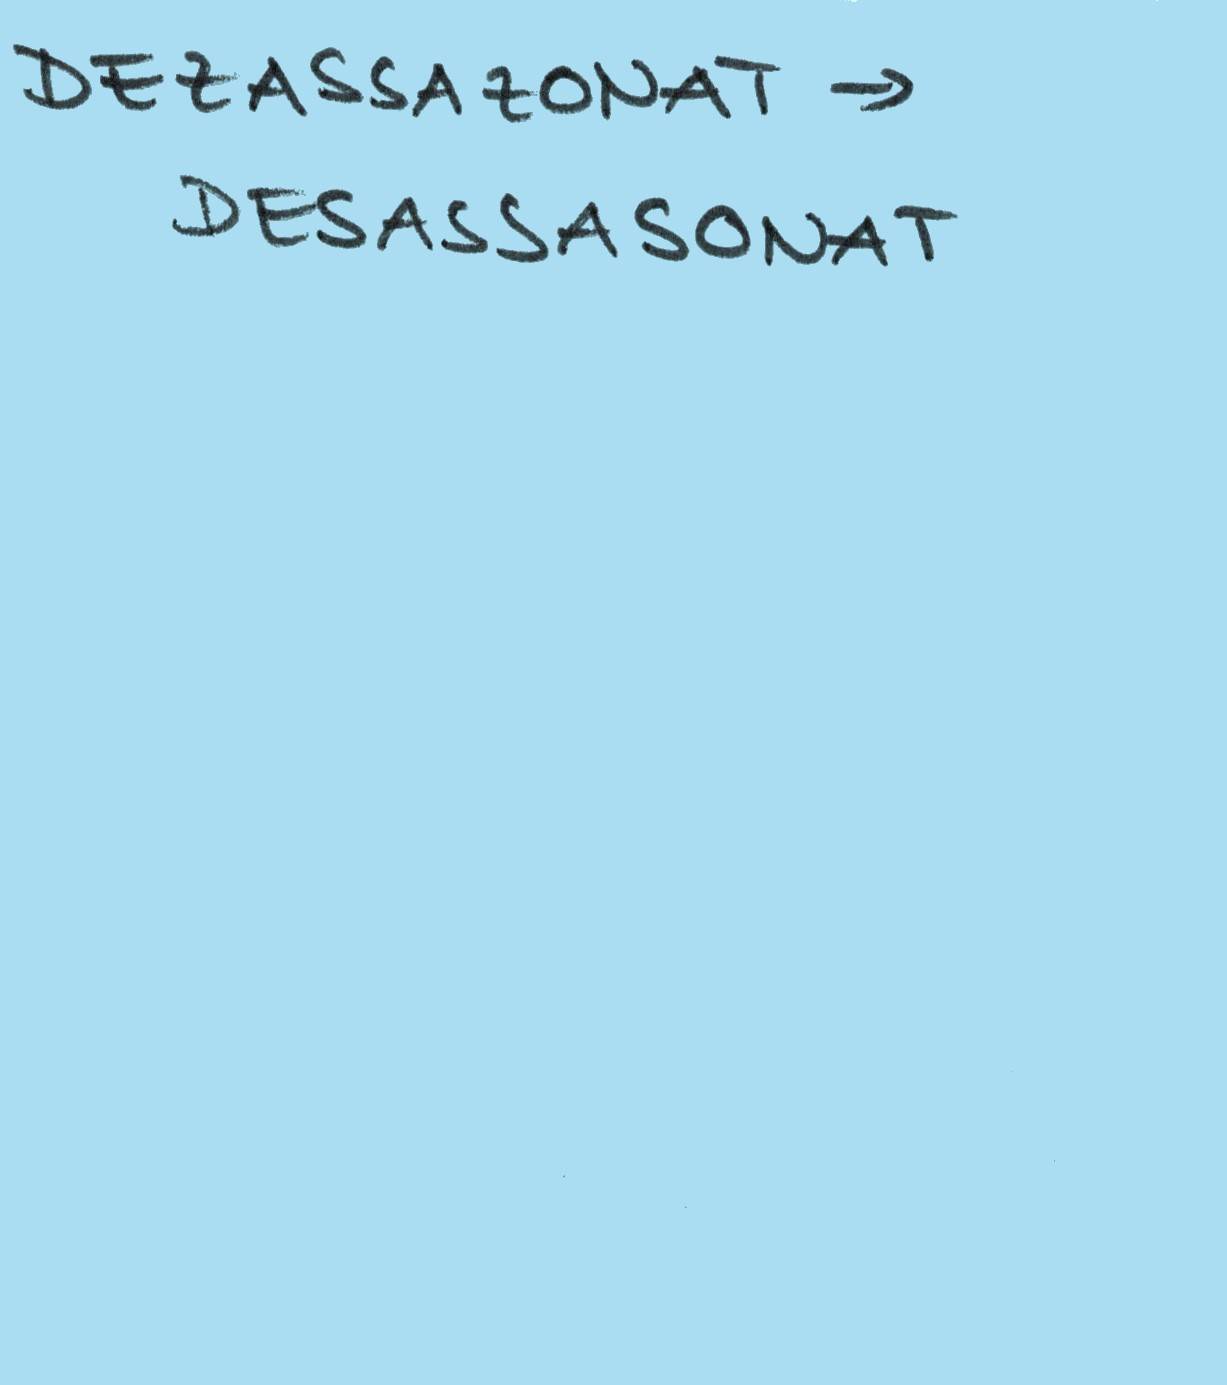 DEZASSAZONAT →
DESASSASONAT